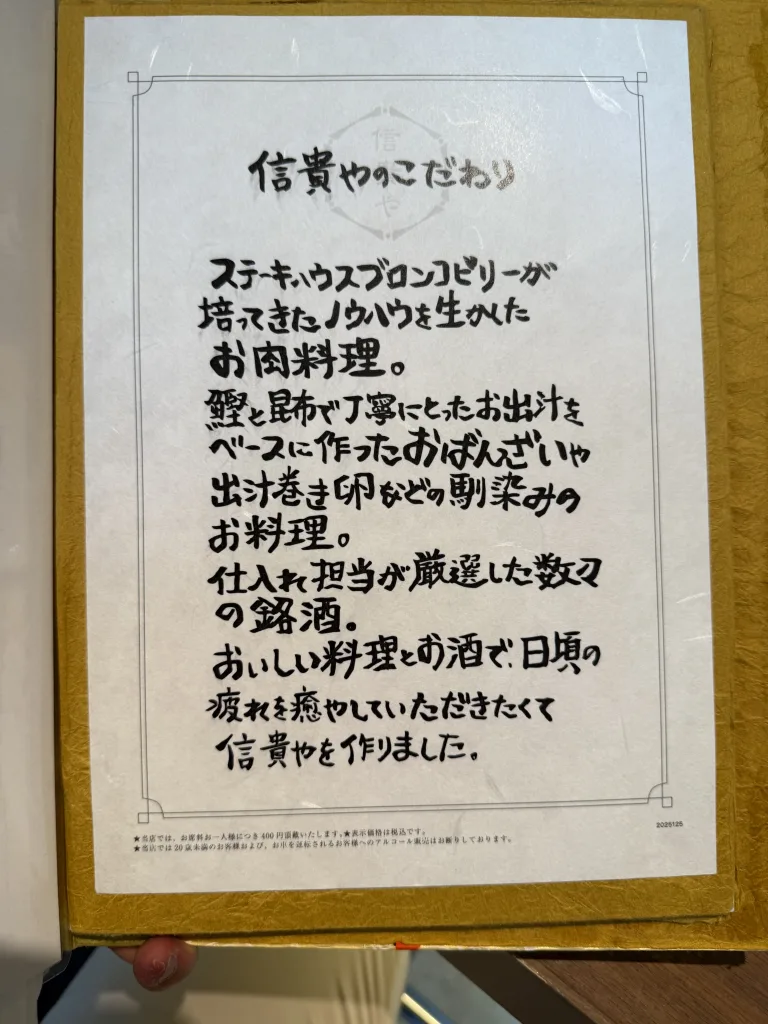 信貴や
信貴やのこだわり
ステーキハウスブロンコビリーが
培ってきたノウハウを生かした
お肉料理。
鰹と昆布で丁寧にとったお出汁を
ベースに作ったおばんざいや
出汁巻き卵などの馴染みの
お料理。
仕入れ担当が厳選した数々
の銘酒。
おいしい料理とお酒で、日頃の
疲れを癒やしていただきたくて
信貴やを作りました。
2025125
★当店では、お席料お一人様につき400円頂戴いたします。★表示価格は税込です。
★当店では20歳未満のお客様および、お車を運転されるお客様へのアルコール販売はお断りしております。